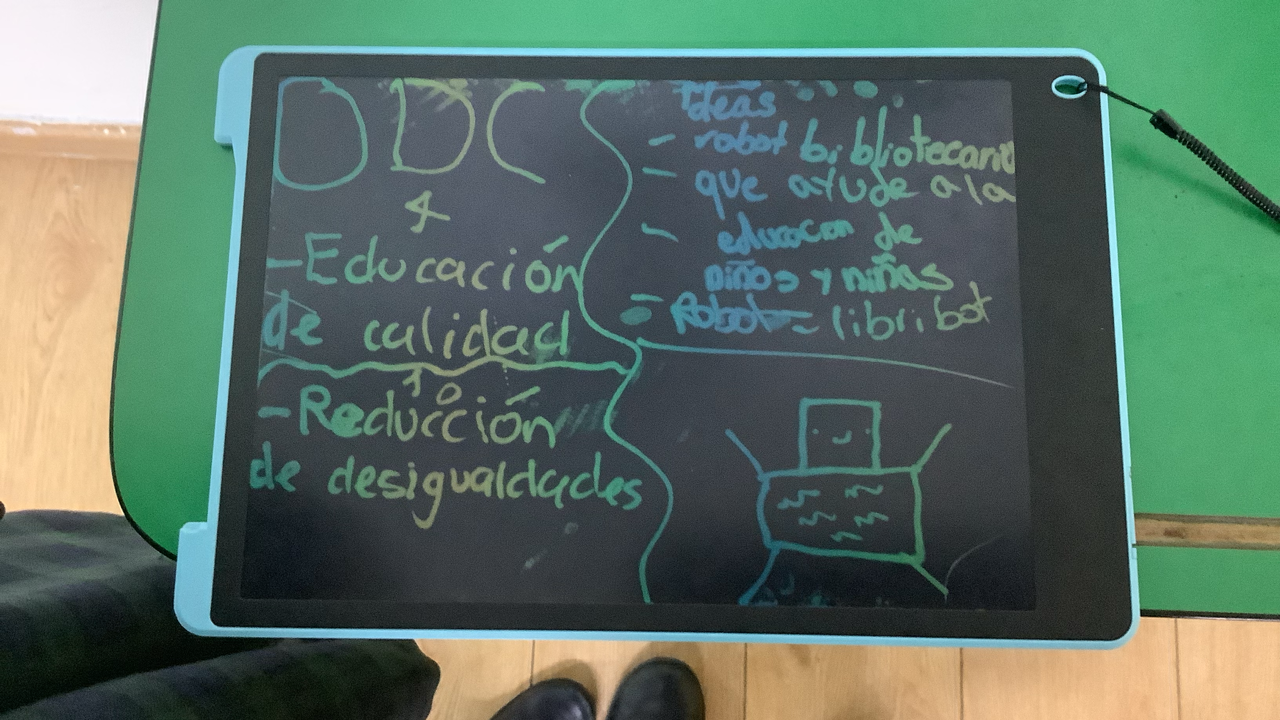 ODC
4
-Educación
de calidad
10
-Reducción
de desigualdades
Ideas
- robot bibliotecario
- que ayude a la
- educacion de
niños y niñas
- Robot = libribot